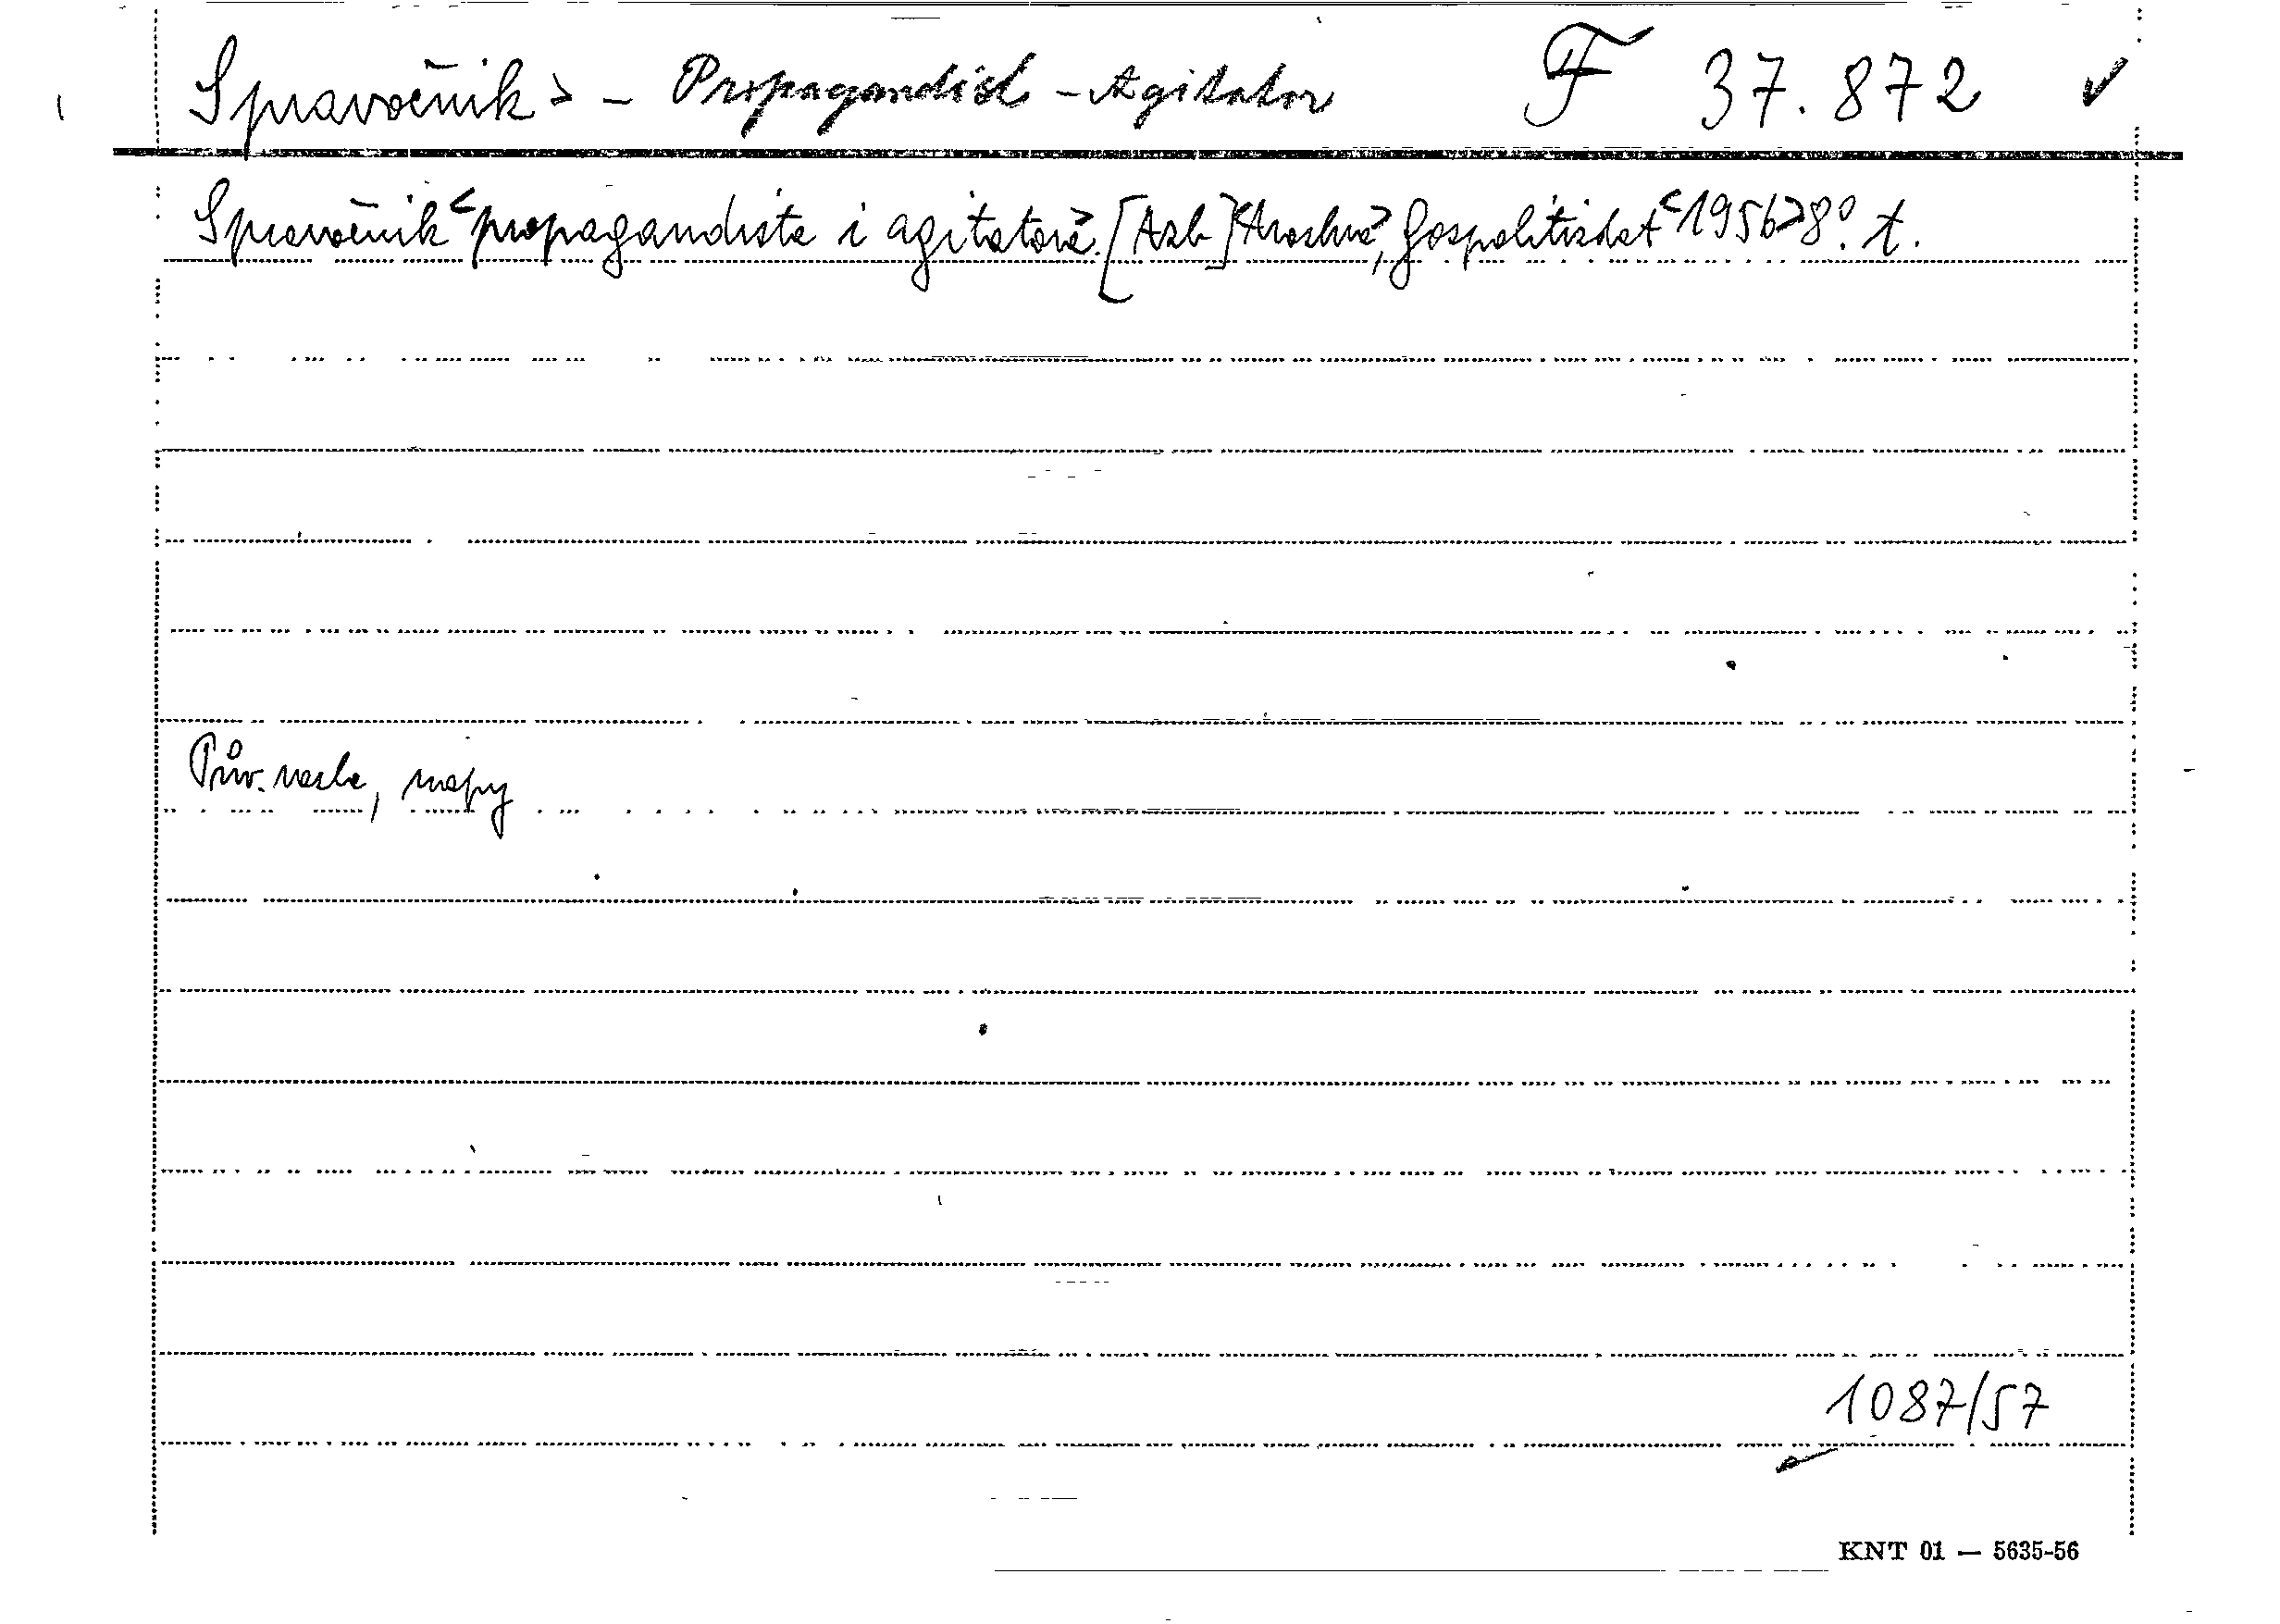 Spravočnik> - Propagandist - Agitator F 37.872 ✓
Spravočnik <propagandista i agitatora>. [Azb.] <Moskva>, Gospolitizdat <1956> 8°. t.
Pův. vazba, mapy
1087/57
KNT 01 — 5635-56